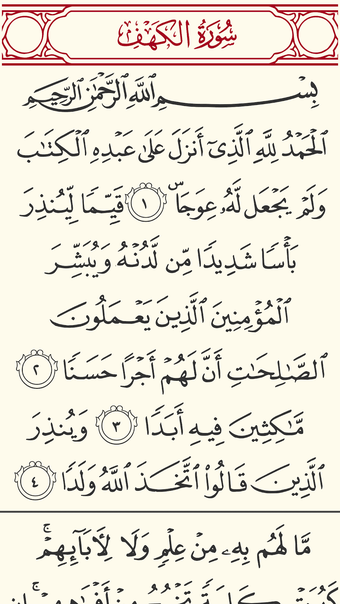 سُورَةُ الكَهْفِ
بِسْمِ ٱللَّهِ ٱلرَّحْمَٰنِ ٱلرَّحِيمِ
ٱلْحَمْدُ لِلَّهِ ٱلَّذِىٓ أَنزَلَ عَلَىٰ عَبْدِهِ ٱلْكِتَٰبَ
وَلَمْ يَجْعَل لَّهُۥ عِوَجَاۜ ١ قَيِّمًا لِّيُنذِرَ
بَأْسًا شَدِيدًا مِّن لَّدُنْهُ وَيُبَشِّرَ
ٱلْمُؤْمِنِينَ ٱلَّذِينَ يَعْمَلُونَ
ٱلصَّٰلِحَٰتِ أَنَّ لَهُمْ أَجْرًا حَسَنًا ٢
مَّٰكِثِينَ فِيهِ أَبَدًا ٣ وَيُنذِرَ
ٱلَّذِينَ قَالُوا۟ ٱتَّخَذَ ٱللَّهُ وَلَدًا ٤
مَّا لَهُم بِهِۦ مِنْ عِلْمٍ وَلَا لِأٓبَآئِهِمْۚ